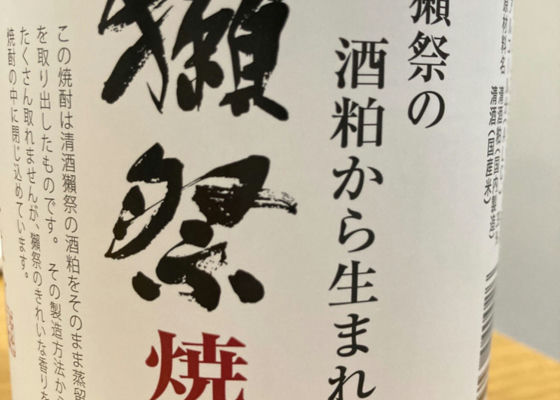 原材料名 清酒粕(国内製造)
清酒(国産米)
獺祭の
酒粕から生まれ
獺祭
焼
この焼酎は清酒獺祭の酒粕をそのまま蒸留
を取り出したものです。その製造方法から
たくさん取れませんが、獺祭のきれいな香りを
焼酎の中に閉じ込めています。